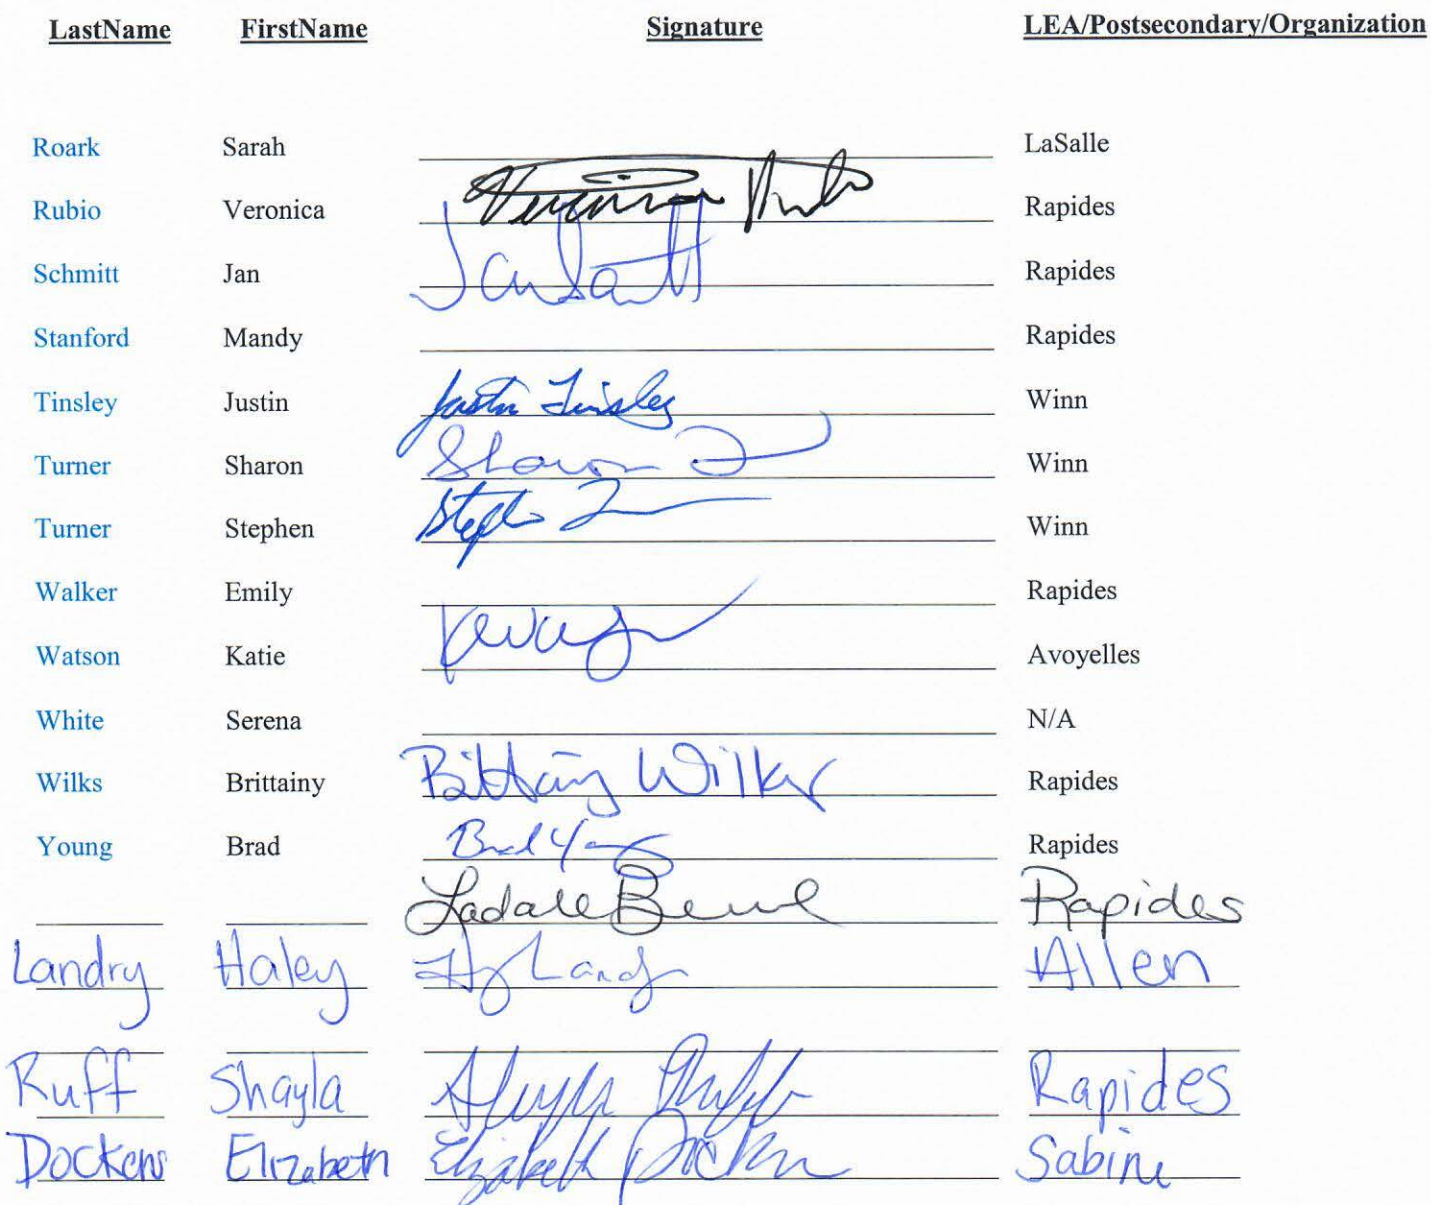 LastName FirstName Signature LEA/Postsecondary/Organization
Roark Sarah LaSalle
Rubio Veronica Veronica Rubio Rapides
Schmitt Jan Jan Rapides
Stanford Mandy Rapides
Tinsley Justin Justin Tinsley Winn
Turner Sharon Sharon Winn
Turner Stephen Stephen Winn
Walker Emily Rapides
Watson Katie Avoyelles
White Serena N/A
Wilks Brittainy Brittainy Wilks Rapides
Young Brad Brad Young Rapides
Rapides
Landry Haley Landry Allen
Ruff Shayla Shayla Ruff Rapides
Dockens Elizabeth Elizabeth Dockens Sabine